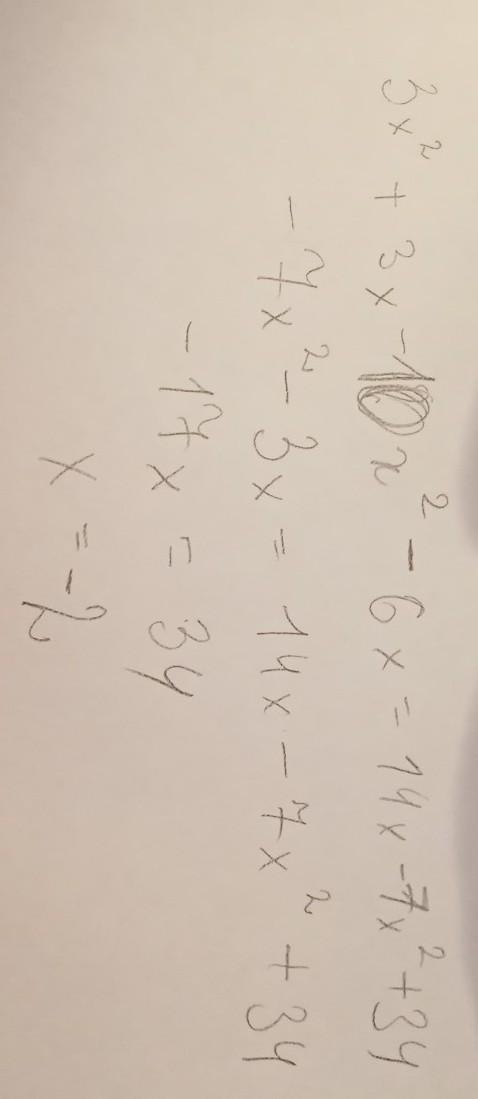 3x² + 3x - 10x² - 6x = 14x - 7x² + 34
- 7x² - 3x = 14x - 7x² + 34
- 17x = 34
x = - 2